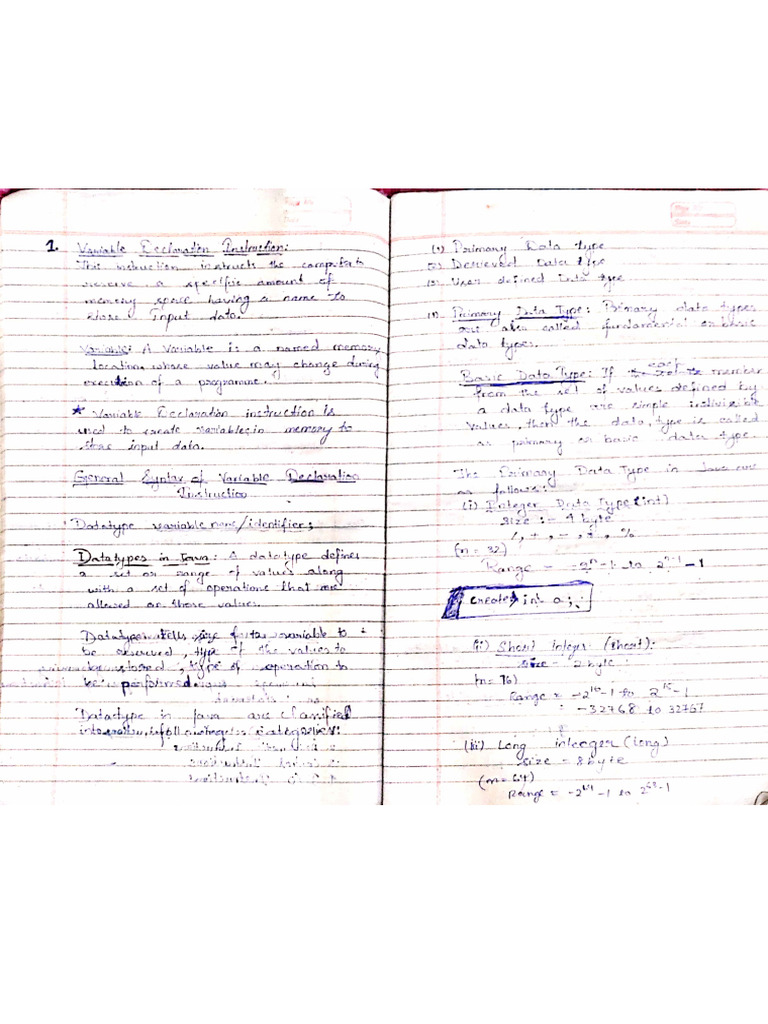 1. Variable Declaration Instruction:
This instruction instructs the computer to
reserve a specific amount of
memory space having a name to
store input data.
Variable: A Variable is a named memory
location whose value may change during
execution of a programme.
* Variable Declaration instruction is
used to create variables in memory to
store input data.
General Syntax of Variable Declaration
Instruction
Datatype variable name/identifier;
Datatypes in Java: A datatype defines
a set or range of values along
with a set of operations that are
allowed on those values.
Datatype tells size for the variable to
be reserved, type of the values to
be stored, type of operation to
be performed
Datatype in Java are classified
into following categories:
(1) Primary Data type
(2) Derieved Data type
(3) User defined Data type
(1) Primary Data Type: Primary data types
are also called fundamental or basic
data types.
Basic Data Type: If each member
from the set of values defined by
a data type are simple indivisible
values, then the data type is called
as primary or basic data type.
The Primary Data Type in Java are
as follows:
(i) Integer Data Type (int)
size :- 4 byte
/, +, -, *, %
(n = 32)
Range = -2ⁿ-1 to 2ⁿ⁻¹-1
creates int a;
(ii) Short integer (short):
size = 2 byte
(n=16)
Range = -2¹⁶-1 to 2¹⁵-1
= -32768 to 32767
(iii) Long integer (long)
size = 8 byte
(n=64)
Range = -2⁶⁴-1 to 2⁶³-1